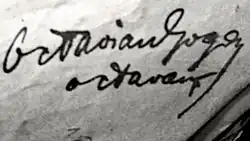 Octavian Goga
octavian